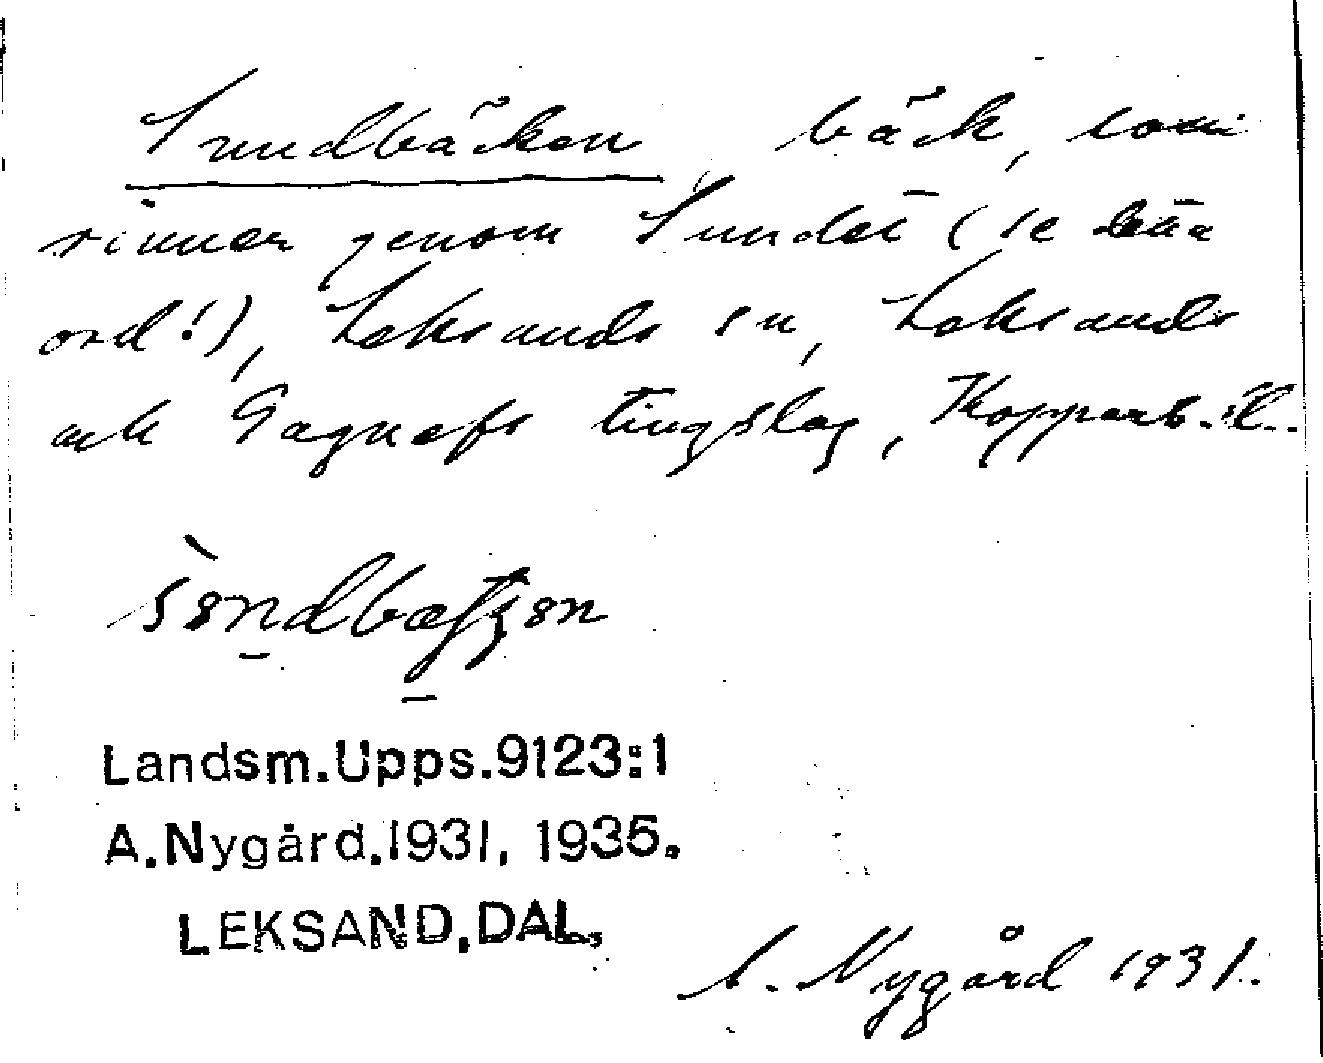 Sundbäcken, bäck, som
rinner genom Sundet (se detta
ord!), Leksands sn, Leksands
och Gagnefs tingslag, Kopparb. l.
Landsm.Upps.9123:1
A.Nygård.1931, 1935.
LEKSAND, DAL.
A. Nygård 1931.